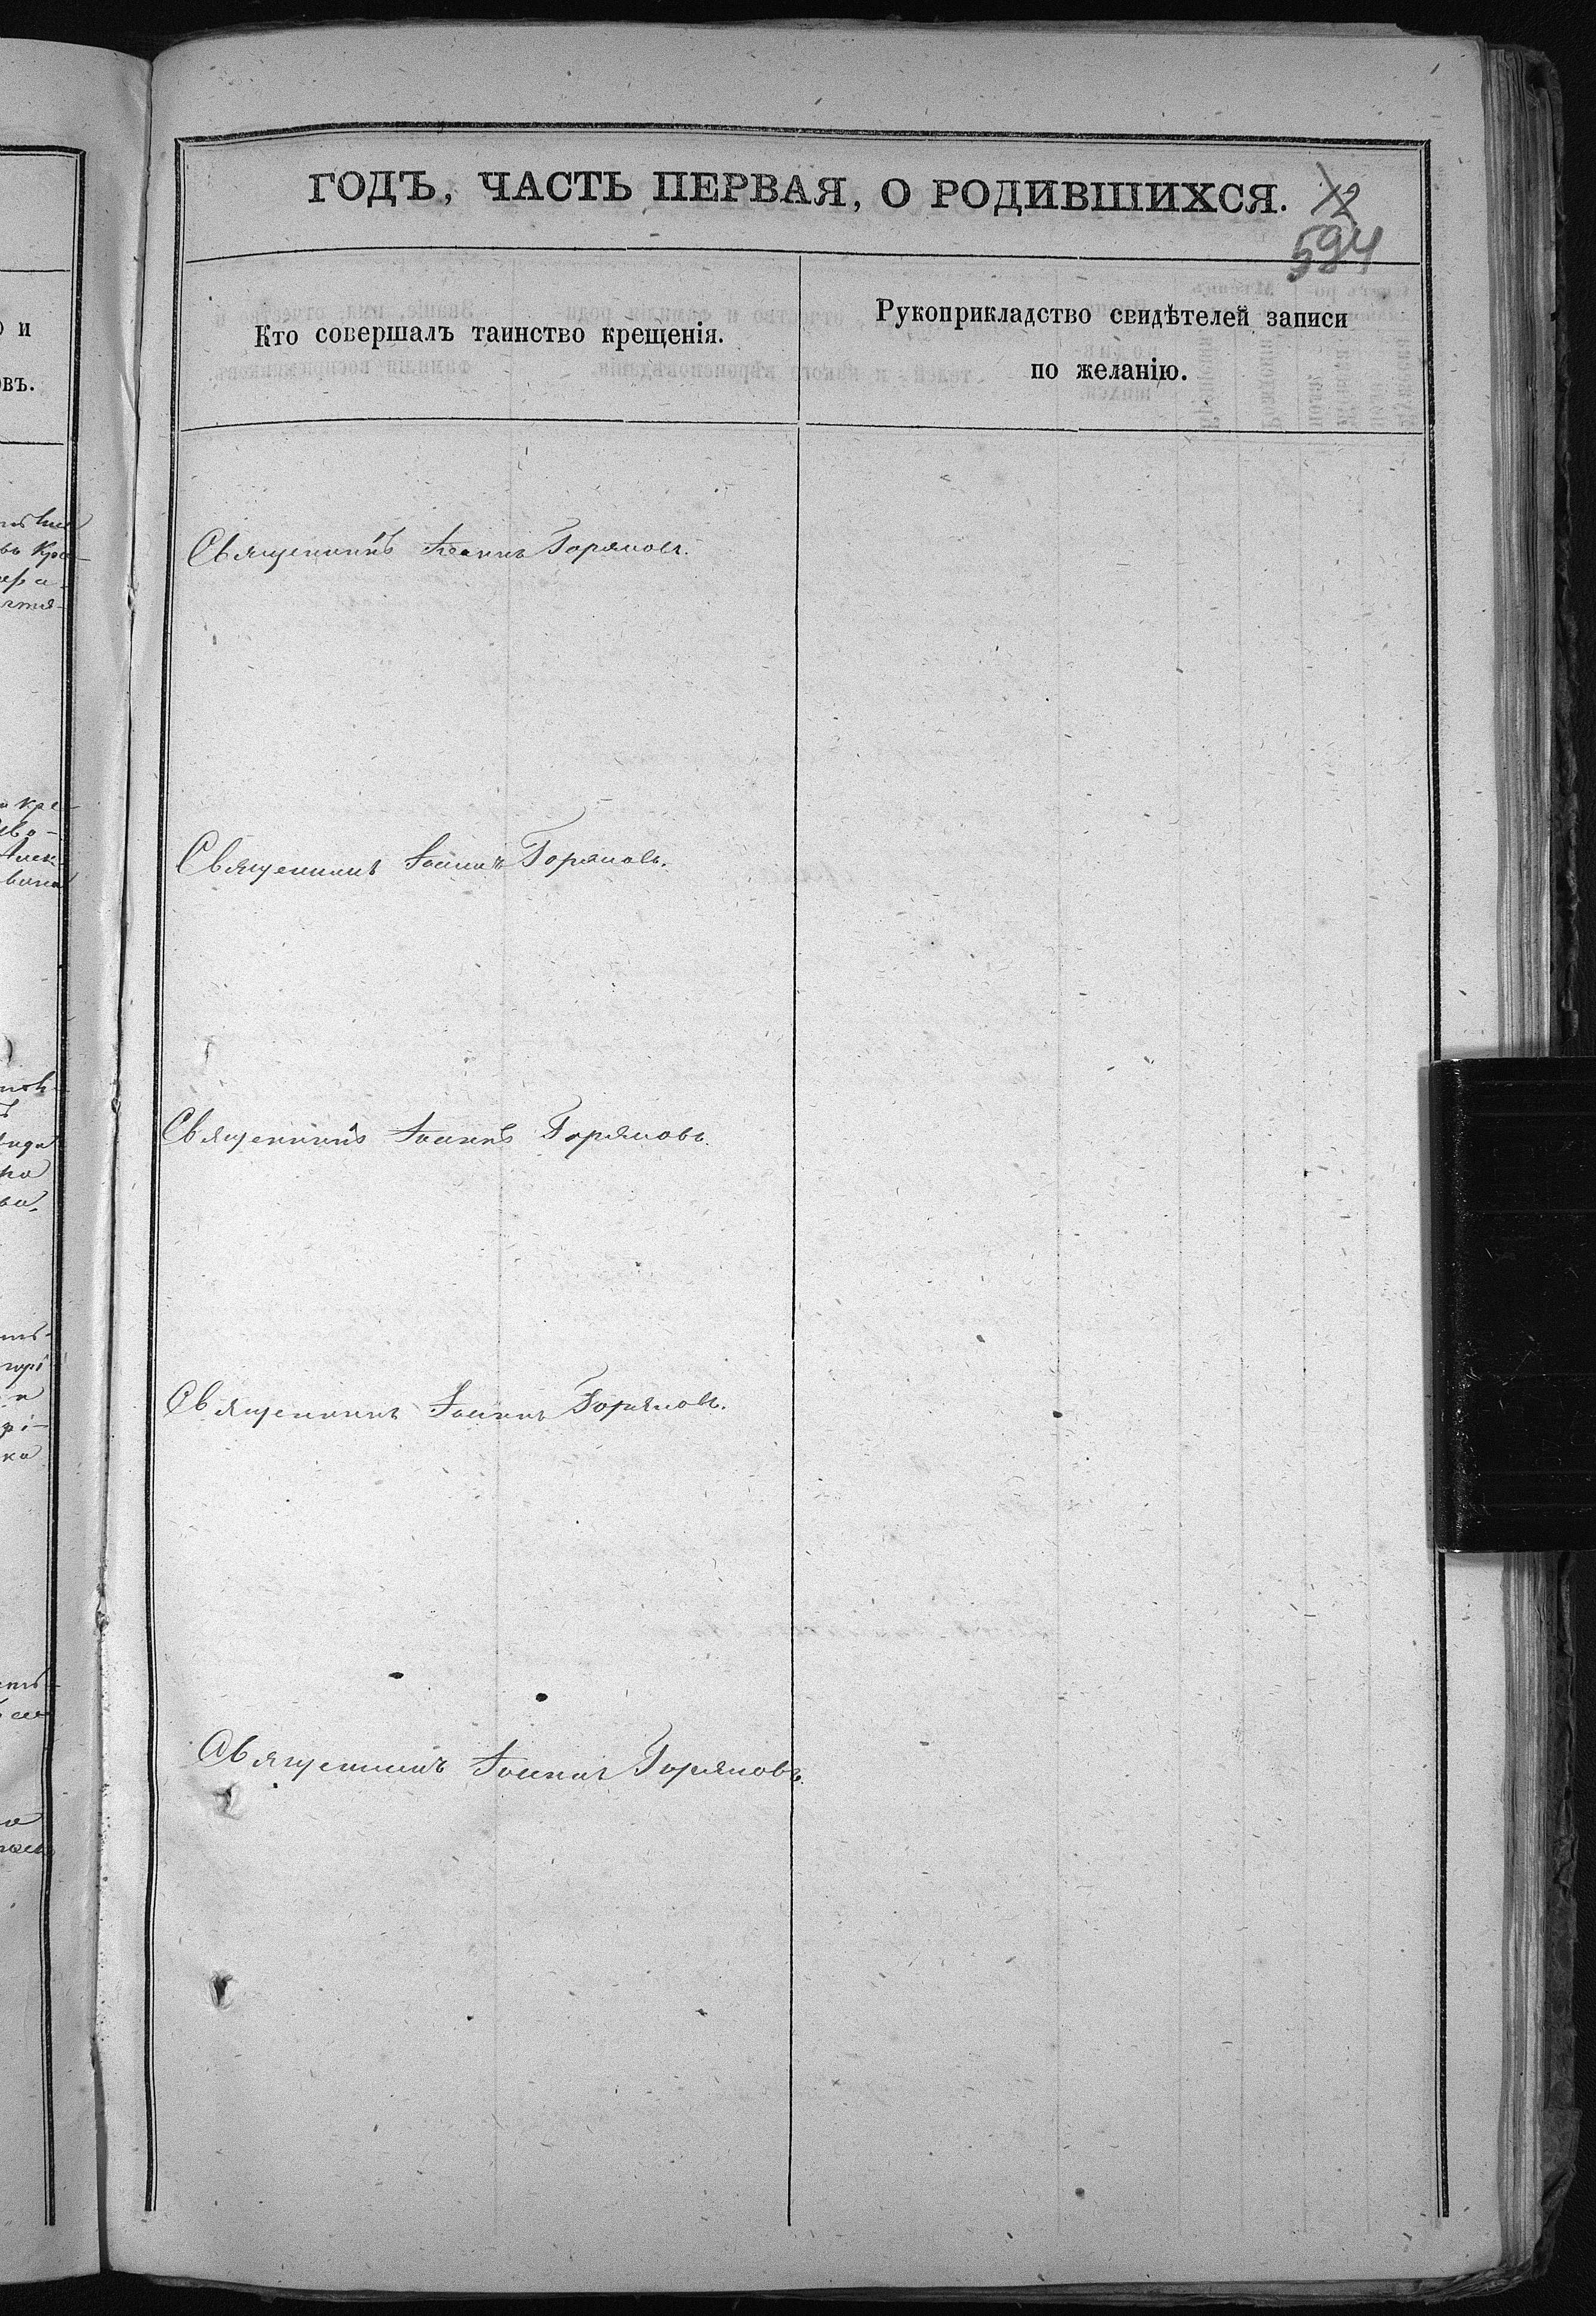 ГОДЪ, ЧАСТЬ ПЕРВАЯ, О РОДИВШИХСЯ.
594
Кто совершалъ таинство крещенія.
Рукоприкладство свидѣтелей записи
по желанію.
Священникъ Іоаннъ Горяновъ.
Священникъ Іоаннъ Горяновъ.
Священникъ Іоаннъ Горяновъ.
Священникъ Іоаннъ Горяновъ.
Священникъ Іоаннъ Горяновъ.